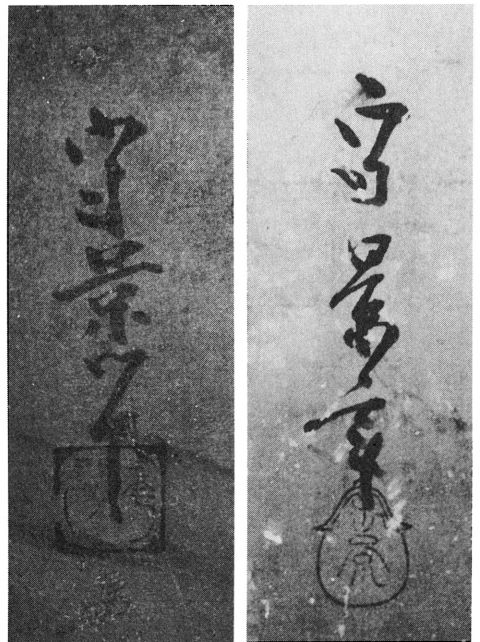 守景筆
守景筆